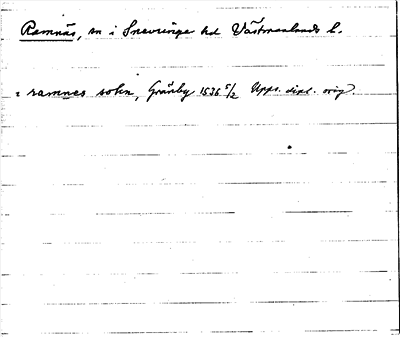 Ramnäs, sn i Snevringe hd Västmanlands l.
i ramnes sokn, Gränby 1536 5/2 Upps. dipl. orig.